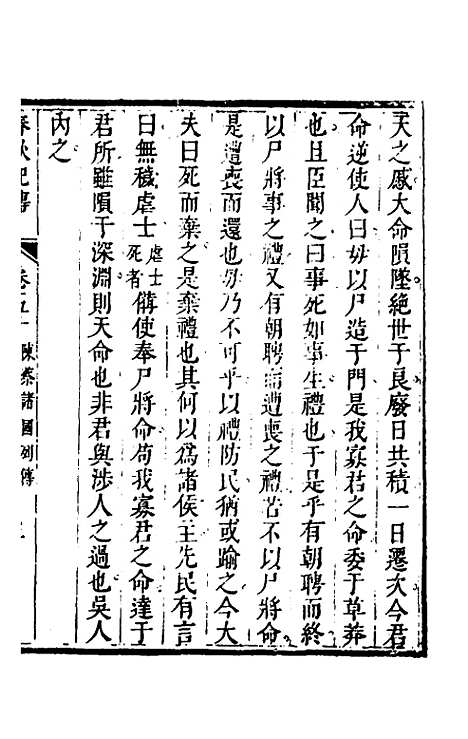 大之慼大命隕墜絶世于良廢日共積一日遷次今君
命逆使人曰毋以尸造于門是我寡君之命委于草莽
也且臣聞之曰事死如事生禮也于是乎有朝聘而終
以尸將事之禮又有朝聘而遭喪之禮若不以尸將命
是遭喪而還也毋乃不可乎以禮防民猶或踰之今大
夫曰死而棄之是棄禮也其何以爲諸侯主先民有言
曰無穢虐士虐士死者備使奉尸將命苟我寡君之命達于
君所雖隕于深淵則天命也非君與涉人之過也吳人
內之
春秋紀傳 卷五十 陳蔡諸國列傳